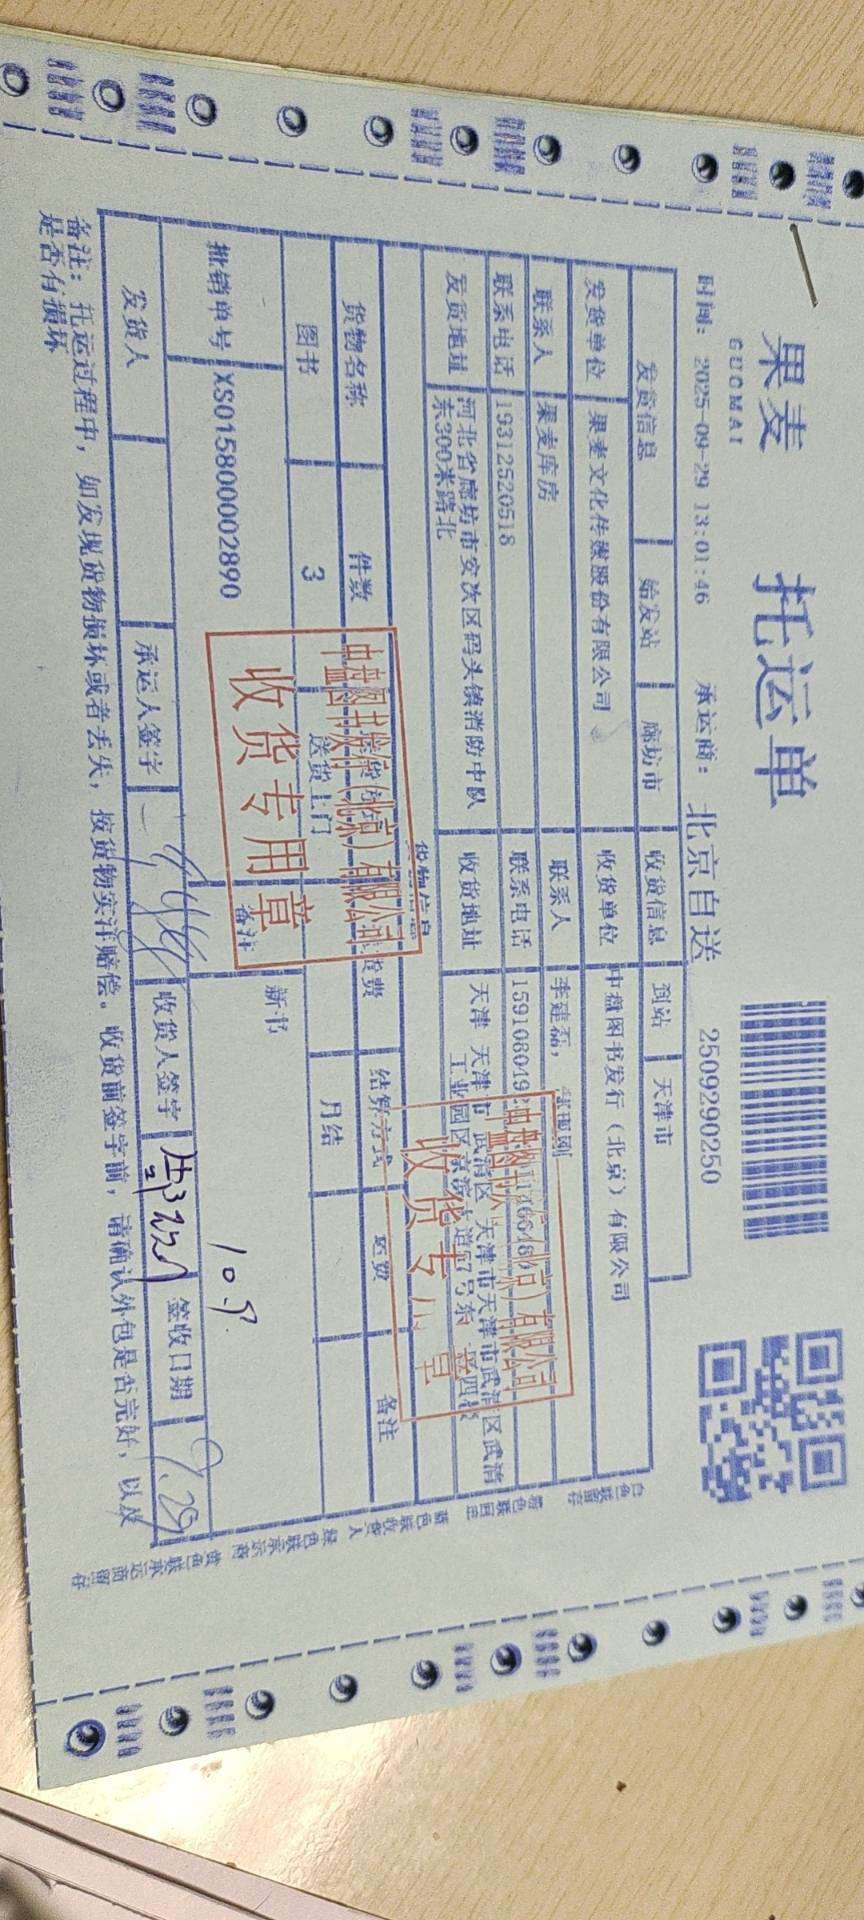 果麦
GUOMAI
托运单
时间: 2025-09-29 13:01:46 承运商: 北京自送 2509290250
发货信息 始发站 廊坊市 收货信息 到站 天津市
发货单位 果麦文化传媒股份有限公司 收货单位 中盘图书发行（北京）有限公司
联系人 果麦库房 联系人 李建磊,
联系电话 19312520518 联系电话
发货地址 河北省廊坊市安次区码头镇消防中队
东300米路北
收货地址 天津 天津市 武清区 天津市天津市武清区武清
工业园区京滨大道
货物信息
货物名称 件数 货费 结算方式 运费 备注
图书 3 送货上门 月结
批销单号 XS015800002890 备注 新书
10.9
发货人 承运人签字 收货人签字 签收日期 9.29
备注: 托运过程中，如发现货物损坏或者丢失，按货物实洋赔偿。收货前签字前，请确认外包是否完好，以及
是否有损坏
中盘图书发行（北京）有限公司
收货专用章
收货专用章
白色联留存 蓝色联收货人 绿色联承运商 黄色联承运商留存